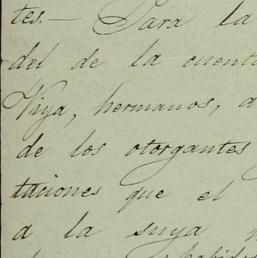 tes.— Para la
del de la cuenta
Viya, hermanos, a
de los otorgantes
taciones que el
a la suya